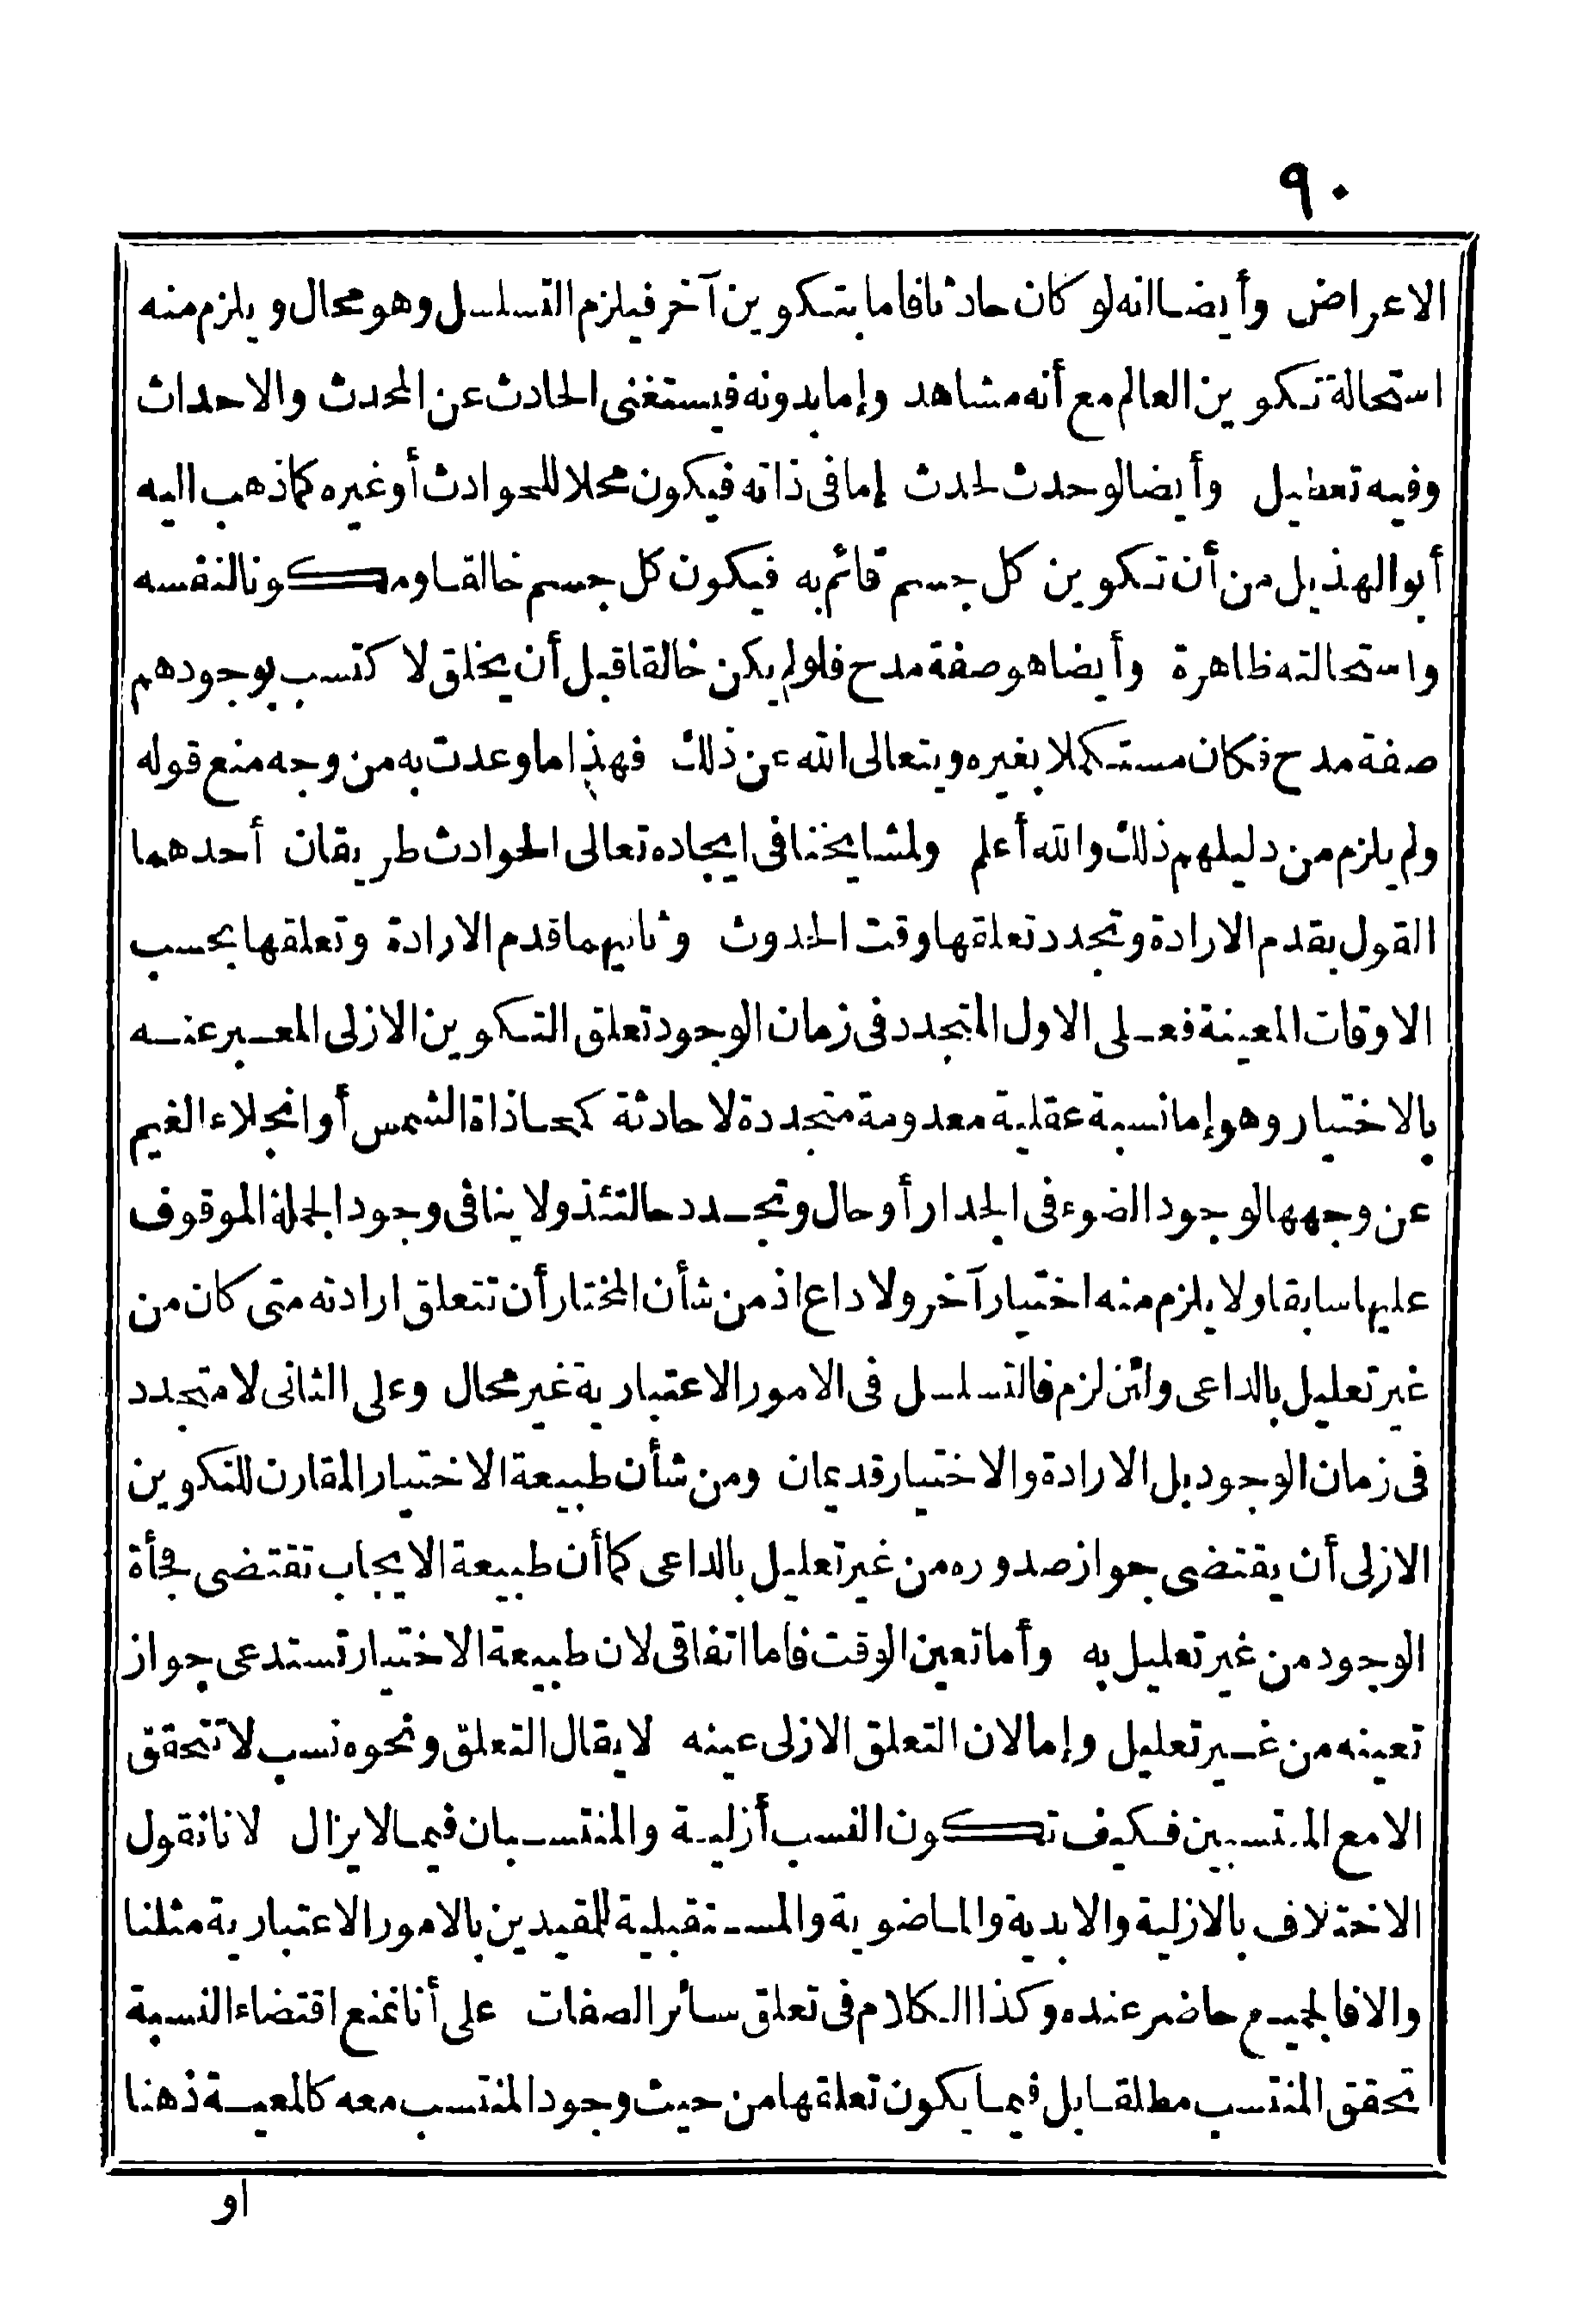 ٩٠
الاعراض وأيضا انه لو كان حادثا فاما بتكوين آخر فيلزم التسلسل وهو محال ويلزم منه
استحالة تكوين العالم مع أنه مشاهد وإما بدونه فيستغنى الحادث عن المحدث والاحداث
وفيه تعطيل وأيضا لو حدث لحدث إما فى ذاته فيكون محلا للحوادث أو غيره كما ذهب اليه
أبو الهذيل من أن تكوين كل جسم قائم به فيكون كل جسم خالقا ومكونا لنفسه
واستحالته ظاهرة وأيضا هو صفة مدح فلو لم يكن خالقا قبل أن يخلق لا كتسب بوجودهم
صفة مدح فكان مستكملا بغيره ويتعالى الله عن ذلك فهذا ما وعدت به من وجه منع قوله
ولم يلزم من دليلهم ذلك والله أعلم ولمشايخنا فى ايجاده تعالى الحوادث طريقان أحدهما
القول بقدم الارادة وتجدد تعلقها وقت الحدوث وثانيهما قدم الارادة وتعلقها بحسب
الاوقات المعينة فعلى الاول المتجدد فى زمان الوجود تعلق التكوين الازلى المعبر عنه
بالاختيار وهو إما نسبة عقلية معدومة متجددة لا حادثة كمحاذاة الشمس أو انجلاء الغيم
عن وجهها لوجود الضوء فى الجدار أو حال وتجدد حالتئذ ولا ينافى وجود الجملة الموقوف
عليها سابقا ولا يلزم منه اختيار آخر ولا داع اذ من شأن المختار أن تتعلق ارادته متى كان من
غير تعليل بالداعى ولئن لزم فالتسلسل فى الامور الاعتبارية غير محال وعلى الثانى لا متجدد
فى زمان الوجود بل الارادة والاختيار قديمان ومن شأن طبيعة الاختيار المقارن للتكوين
الازلى أن يقتضى جواز صدوره من غير تعليل بالداعى كما أن طبيعة الايجاب تقتضى فجأة
الوجود من غير تعليل به وأما تعين الوقت فاما اتفاقى لان طبيعة الاختيار تستدعى جواز
تعينه من غير تعليل وإما لان التعلق الازلى عينه لا يقال التعلق ونحوه نسب لا تتحقق
الا مع المنتسبين فكيف تكون النسب أزلية والمنتسبان فيما لا يزال لانا نقول
الاختلاف بالازلية والابدية والماضوية والمستقبلية للمقيدين بالامور الاعتبارية مثلنا
والا فالجميع حاضر عنده وكذا الكلام فى تعلق سائر الصفات على أنا نمنع اقتضاء النسبة
تحقق المنتسب مطلقا بل فيما يكون تعلقها من حيث وجود المنتسب معه كالمعية ذهنا
او